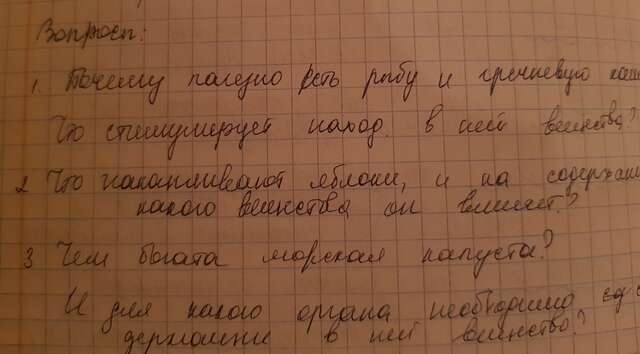 Вопросы:
1. Почему полезно есть рыбу и гречневую каш
Что стимулирует наход. в ней вещества?
2 Что накапливают яблоки, и на содержани
какого вещества он влияет?
3 Чем богата морская капуста?
И для какого органа необходимо
в ней вещество?